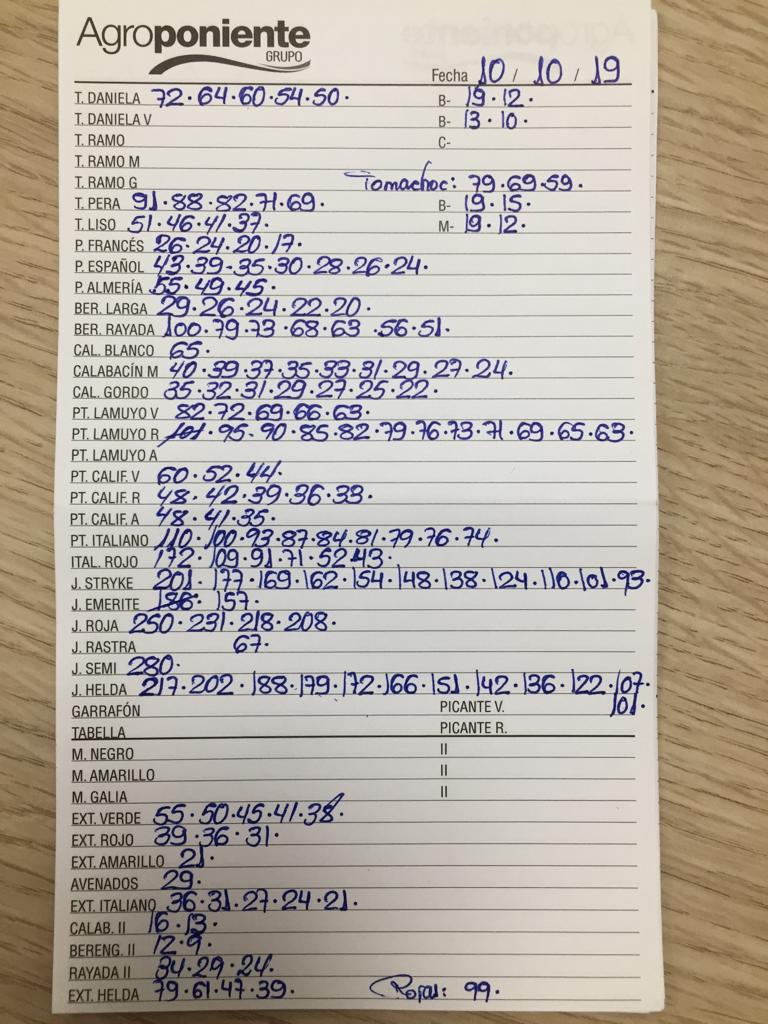 Agroponiente
GRUPO
Fecha 10 / 10 / 19
T. DANIELA 72·64·60·54·50· B- 19·12·
T. DANIELA V B- 13·10·
T. RAMO C-
T. RAMO M
T. RAMO G Tomachoc: 79·69·59·
T. PERA 91·88·82·71·69· B- 19·15·
T. LISO 51·46·41·37· M- 19·12·
P. FRANCÉS 26·24·20·17·
P. ESPAÑOL 43·39·35·30·28·26·24·
P. ALMERÍA 55·49·45·
BER. LARGA 29·26·24·22·20·
BER. RAYADA 100·79·73·68·63·56·51·
CAL. BLANCO 65·
CALABACÍN M 40·39·37·35·33·31·29·27·24·
CAL. GORDO 35·32·31·29·27·25·22·
PT. LAMUYO V 82·72·69·66·63·
PT. LAMUYO R 101·95·90·85·82·79·76·73·71·69·65·63·
PT. LAMUYO A
PT. CALIF. V 60·52·44·
PT. CALIF. R 48·42·39·36·33·
PT. CALIF. A 48·41·35·
PT. ITALIANO 110·100·93·87·84·81·79·76·74·
ITAL. ROJO 172·109·91·71·52·43·
J. STRYKE 201·177·169·162·154·148·138·124·110·101·93·
J. EMERITE 186·157·
J. ROJA 250·231·218·208·
J. RASTRA 67·
J. SEMI 280·
J. HELDA 217·202·188·179·172·166·151·142·136·122·107·
101·
GARRAFÓN PICANTE V.
TABELLA PICANTE R.
M. NEGRO II
M. AMARILLO II
M. GALIA II
EXT. VERDE 55·50·45·41·38·
EXT. ROJO 39·36·31·
EXT. AMARILLO 21·
AVENADOS 29·
EXT. ITALIANO 36·31·27·24·21·
CALAB. II 16·13·
BERENG. II 12·9·
RAYADA II 34·29·24·
EXT. HELDA 79·61·47·39· Rojas: 99·